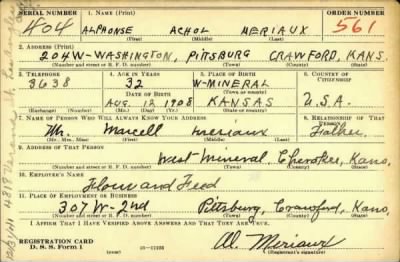 SERIAL NUMBER 1. NAME (Print) ORDER NUMBER
404 ALPHONSE ACHOL MERIAUX 561
(First) (Middle) (Last)
2. ADDRESS (Print)
204 W-WASHINGTON, PITTSBURG CRAWFORD, KANS.
(Number and street or R. F. D. number) (Town) (County) (State)
3. TELEPHONE 4. AGE IN YEARS 5. PLACE OF BIRTH 6. COUNTRY OF CITIZENSHIP
3638 32 W-MINERAL
DATE OF BIRTH (Town or county)
AUG. 12 1908 KANSAS U.S.A.
(Exchange) (Number) (Mo.) (Day) (Yr.) (State or country)
7. NAME OF PERSON WHO WILL ALWAYS KNOW YOUR ADDRESS 8. RELATIONSHIP OF THAT PERSON
Mr. Marcell Meriaux Father
(Mr., Mrs., Miss) (First) (Middle) (Last)
9. ADDRESS OF THAT PERSON
West Mineral, Cherokee, Kans,
(Number and street or R. F. D. number) (Town) (County) (State)
10. EMPLOYER'S NAME
Flour and Feed
11. PLACE OF EMPLOYMENT OR BUSINESS
307 W-2nd Pittsburg, Crawford, Kans,
(Number and street or R. F. D. number) (Town) (County) (State)
I AFFIRM THAT I HAVE VERIFIED ABOVE ANSWERS AND THAT THEY ARE TRUE.
REGISTRATION CARD
D. S. S. Form 1 Al. Meriaux
(Registrant's signature)